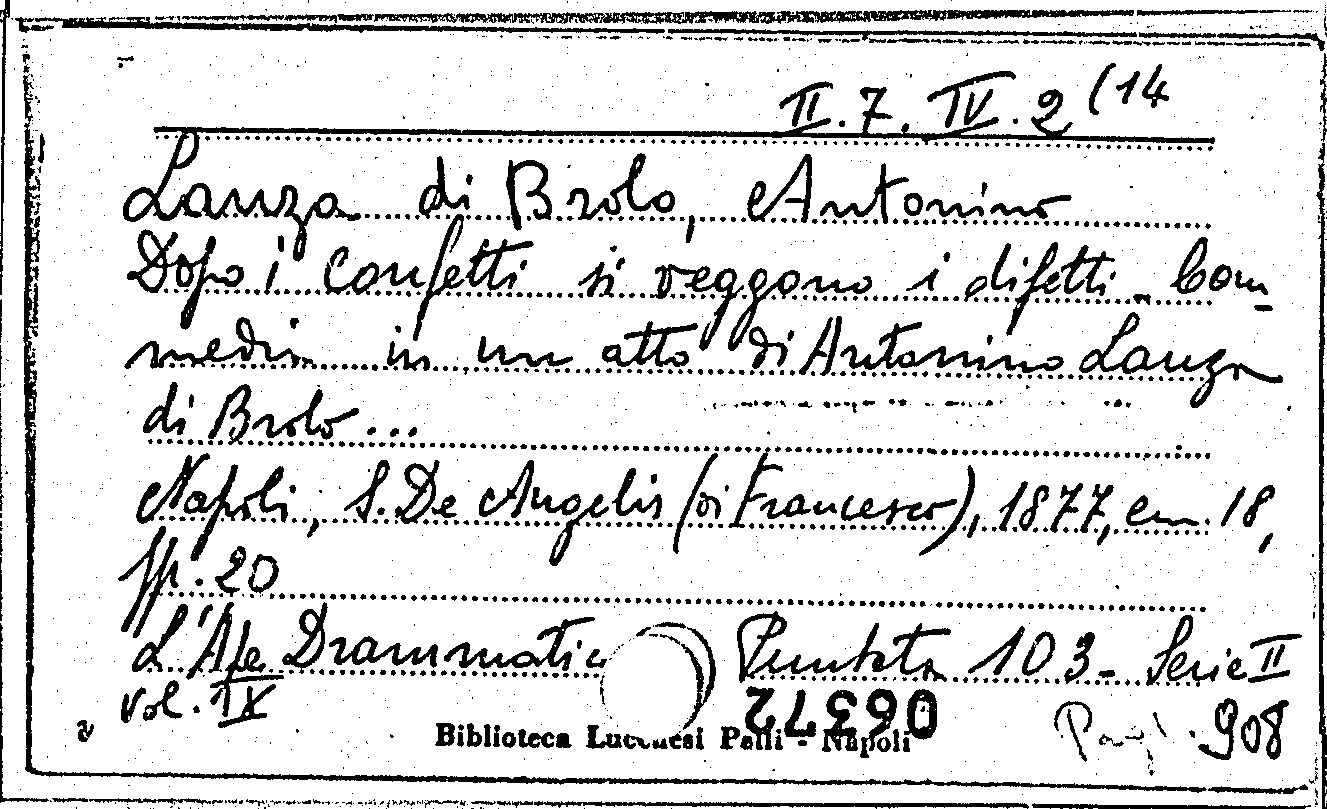 II. 7. IV. 2 (14
Lanza di Brolo, Antonino
Dopo i confetti si veggono i difetti - Com-
media in un atto di Antonino Lanza
di Brolo...
Napoli, S. De Angelis (di Francesco), 1877, cm. 18,
pp. 20
L'Ape Drammatica Puntata 103 - Serie II
vol. IX
06372
Biblioteca Lucchesi Palli - Napoli
908